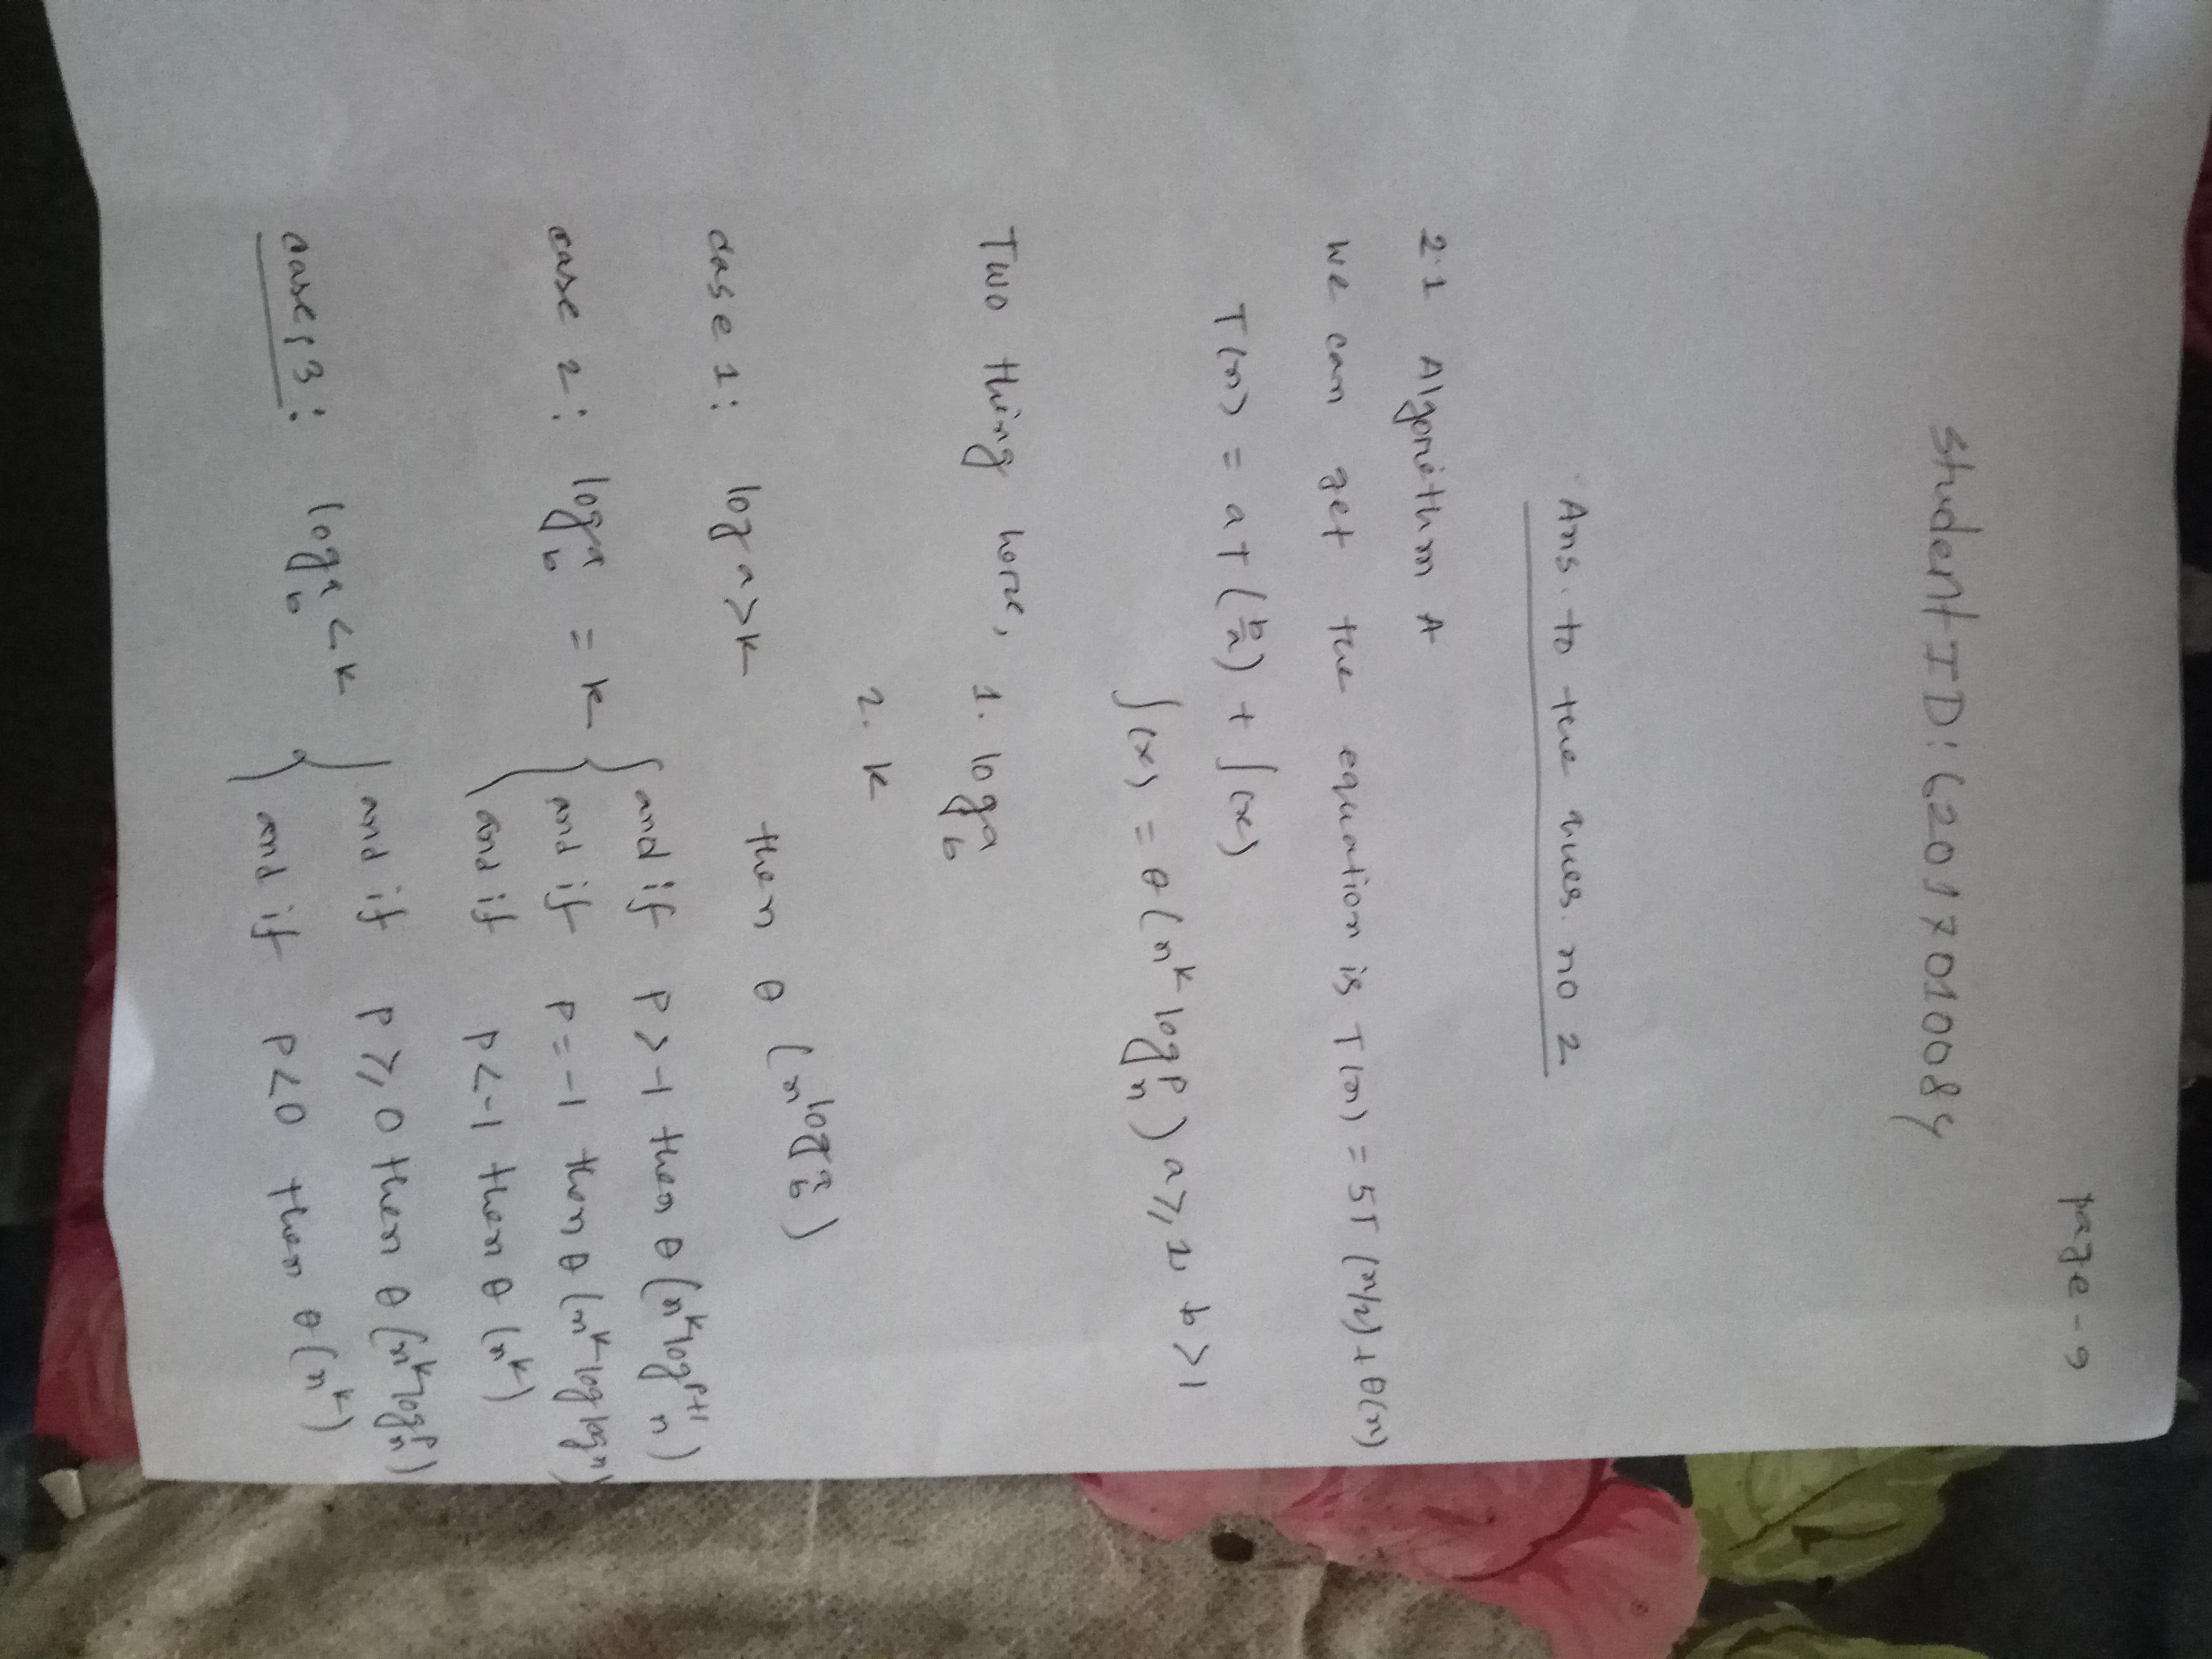 page - 9
Student ID: (2017010084
Ans. to the ques. no 2
2.1 Algorithm A
we can get the equation is T(n) = 5T (n/2) + θ(n)
T(n) = aT (b/n) + ∫(x)
∫(x) = θ (n^k log^p n) a ≥ 1, b > 1
Two thing here, 1. log a b
2. k
case 1: log a > k then θ (n^log a b)
case 2: log a b = k { and if P > -1 then θ (n^k log^p+1 n)
and if P = -1 then θ (n^k log log n)
and if P < -1 then θ (n^k)
case: 3: log a b < k { and if P ≥ 0 then θ (n^k log^p n)
and if P < 0 then θ (n^k)